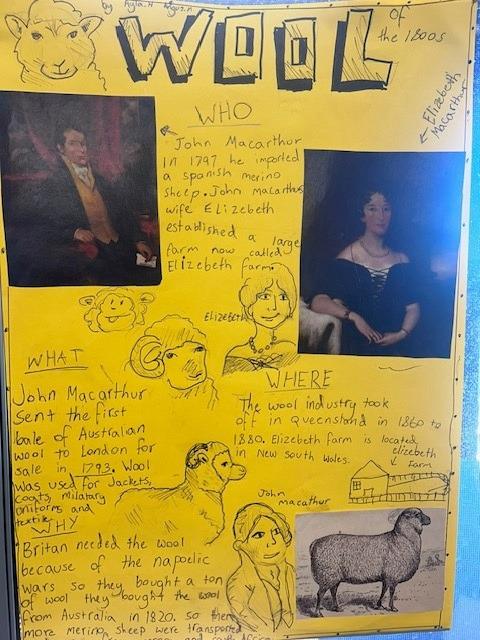 by Ayla.H
WOOL
Of
the 1800s
Elizebeth
Macarthur
WHO
John Macarthur
In 1797 he imported
a spanish merino
sheep. John macarthurs
wife Elizebeth
established a large
farm now called
Elizebeth farm.
Elizebeth
WHAT
John Macarthur
sent the first
bale of Australian
wool to London for
sale in 1793. Wool
was used for Jackets,
coats, military
uniforms and
textile
WHERE
The wool industry took
off in Queensland in 1860 to
1880. Elizebeth farm is located
in New South Wales.
elizebeth
Farm
WHY
Britan needed the wool
because of the napoelic
wars so they bought a ton
of wool they bought the wool
from Australia in 1820. so there
more merino sheep were transported
John
macathur